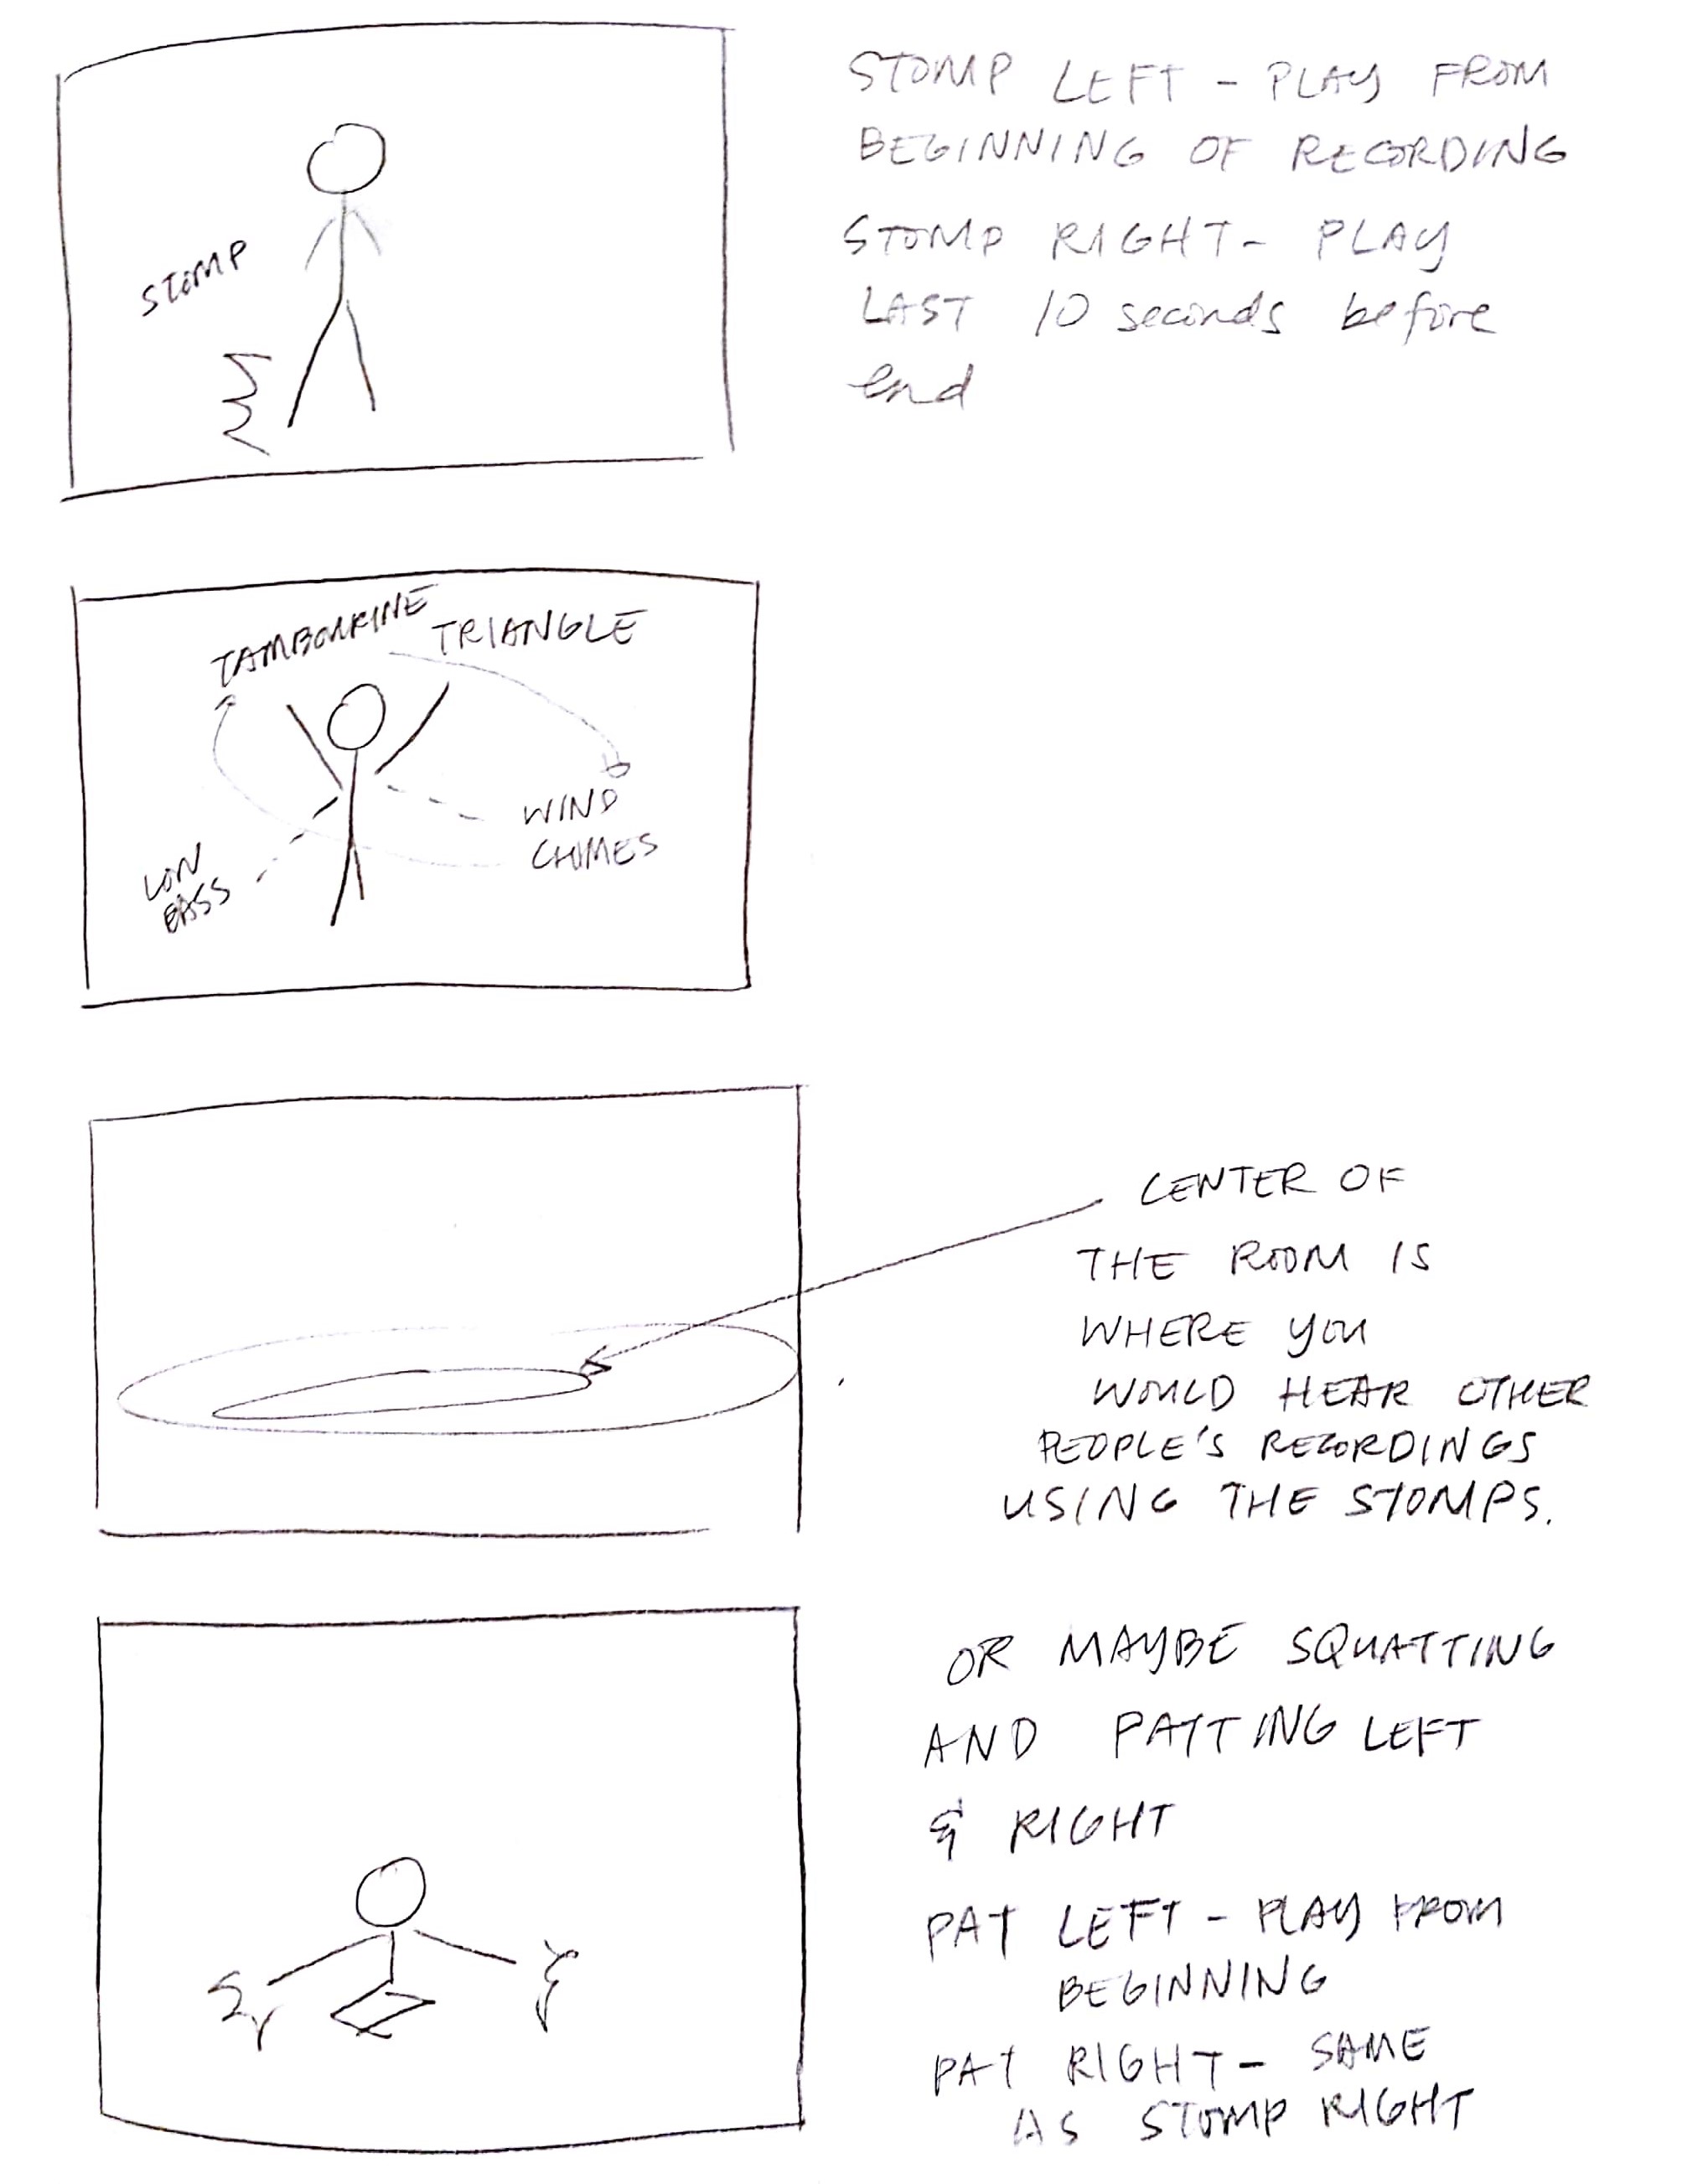 STOMP LEFT - PLAY FROM
BEGINNING OF RECORDING
STOMP RIGHT - PLAY
LAST 10 seconds before
end
STOMP
TAMBOURINE
TRIANGLE
WIND
CHIMES
LOW
BASS
CENTER OF
THE ROOM IS
WHERE YOU
WOULD HEAR OTHER
PEOPLE'S RECORDINGS
USING THE STOMPS.
OR MAYBE SQUATTING
AND PATTING LEFT
& RIGHT
PAT LEFT - PLAY FROM
BEGINNING
PAT RIGHT - SAME
AS STOMP RIGHT